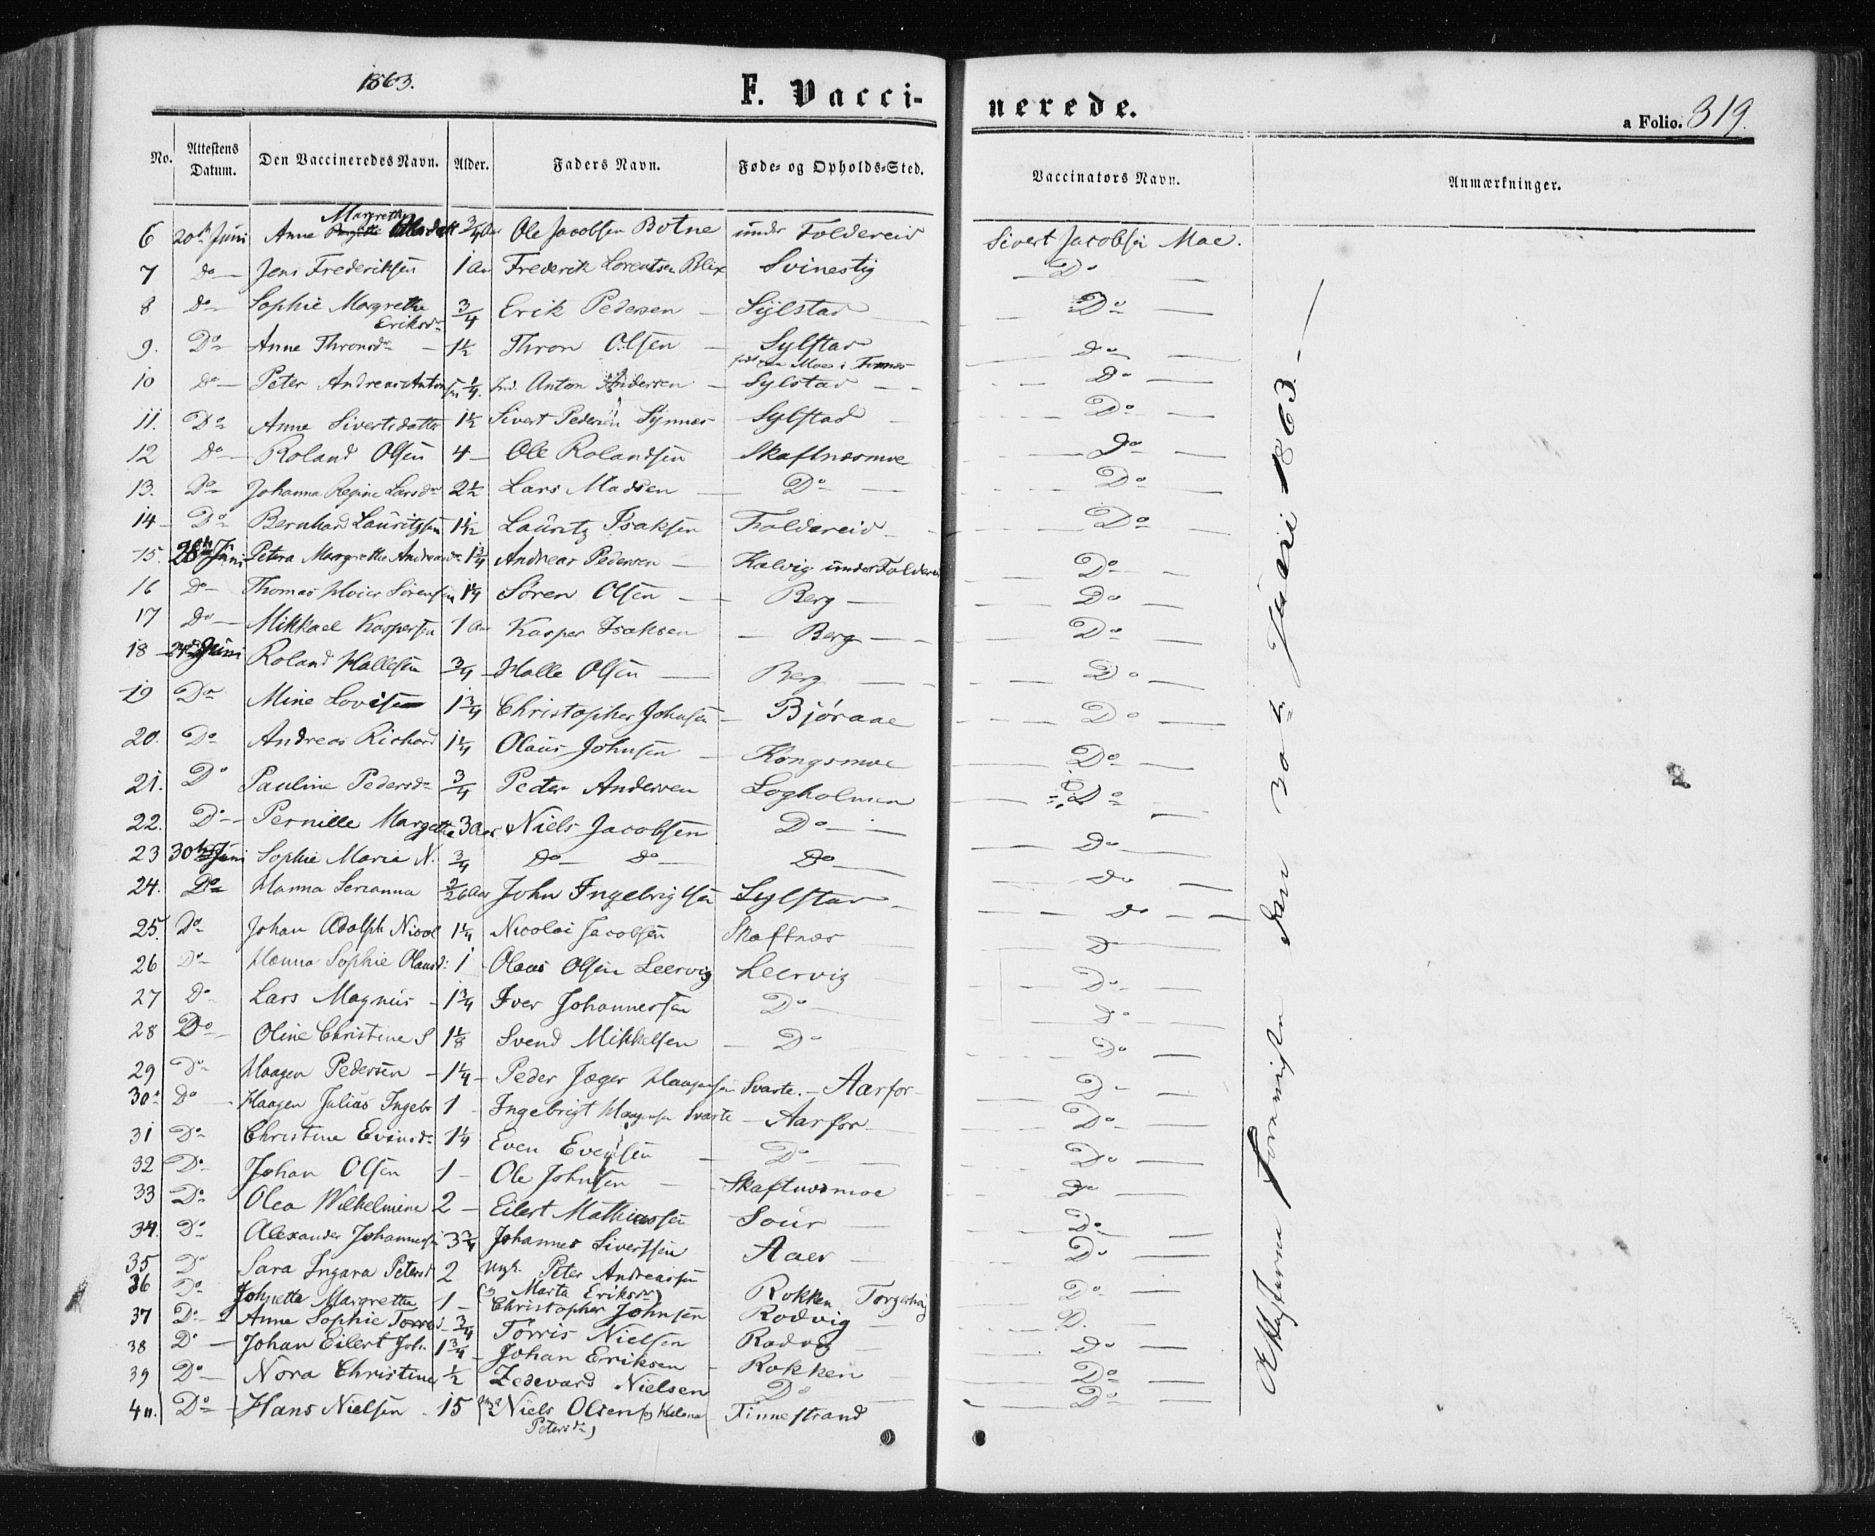 1863.
F. Vaccinerede.
a Folio. 319.
No. Attestens Datum. Den Vaccineredes Navn. Alder. Faders Navn. Føde- og Opholds-Sted. Vaccinators Navn. Anmærkninger.
Margrethe
6 20de Juni Anne 3/4 Aar Ole Jacobsen Botne under Foldereid Sivert Jacobsen Moe.
7 do Jens Frederiksen 1 Aar Frederik Lorentsen Blix Svinestig Do
8 do Sophie Margrethe Eriksd. 3/4 Erik Pedersen Sylstad Do
9. Do Anne Thronsd. 1½ Thron Olsen Sylstad do
10 do Peter Andreas Antonsen 1/4 Ind. Anton Andersen Sylstad Do
11. Do Anne Sivertsdatter 1½ Sivert Pedersen Synnes Sylstad Do
12 do Roland Olsen 4 Ole Rolandsen Skaftnæsmoe do
13. Do Johanna Regine Larsd. 2½ Lars Madsen Do Do
14 Do Bernhard Lauritzsen 1½ Lauritz Isaksen Foldereid Do
15. Juni Petera Margrethe Andreasd. 1¾ Andreas Pedersen Kalvig under Foldereid Do
16 do Thomas Meier Sörensen 1¼ Sören Olsen Berg Do
17 do Mikkael Kaspersen 1 Aar Kasper Isaksen Berg Do
18 Juni Roland Hallesen 3/4 Halle Olsen Berg Do
19 Do Mine Lovise 1¾ Christopher Johnsen Bjøraae Do
20. Do Andreas Richard 1¼ Olaus Johnsen Kongsmoe Do
21. Do Pauline Pedersd. 3/4 Peter Andersen Logholmen Do
22. Do Pernille Margrethe 3 Aar Niels Jacobsen Do Do
23 30te Juni Sophie Maria N. 3/4 do do Do do
24. Do Hanna Serianna John Ingebrigtsen Sylstad do
25. Do Johan Adolph Nicol 1¼ Nicolai Jacobsen Skaftnæs D
26 Do Hanna Sophie Olausd. 1 Olaus Olsen Leervig Leervig Do
27 Do Lars Magnus 1¾ Iver Johannessen Do Do
28 Do Oline Christine S 1⅛ Svend Mikkelsen Do Do
29 Do Haagen Pedersen 1¼ Peder Jæger Haagensen Svarte. Aarfor Do
30 Do Haagen Julias Ingebr 1 Ingebrigt Haagensen Svarte Aarfor Do
31 Do Christine Evensd. 1¼ Even Evensen Do Do
32 Do Johan Olsen 1 Ole Johnsen Skaftnæsmoe do
33 Do Olea Wilhelmine 2 Eilert Mathiassen Sour Do
34. Do Alexander Johannessen 3¾ Johannes Sivertsen Aaer Do
35 Do Sara Ingara Petersd 2 Ungk. Peter Andreassen Rokken Torgerhaug Do
(og Marta Eriksd.)
36 Do Johnetta Margretha 1 Christopher Johnsen Rodvig D.
37 Do Anne Sophie Torris 3/4 Torris Nielsen Rodvig do
38 D Johan Eilert Joh. 1¾ Johan Eriksen Rokken Do
39 Do Nora Christine ½ Zedevard Nielsen Do Do
40. Do Hans Nielsen 15 Niels Olsen (og Helena Petersd.) Finnestrand
Attesterne foranviste den 30te Juni 1863.